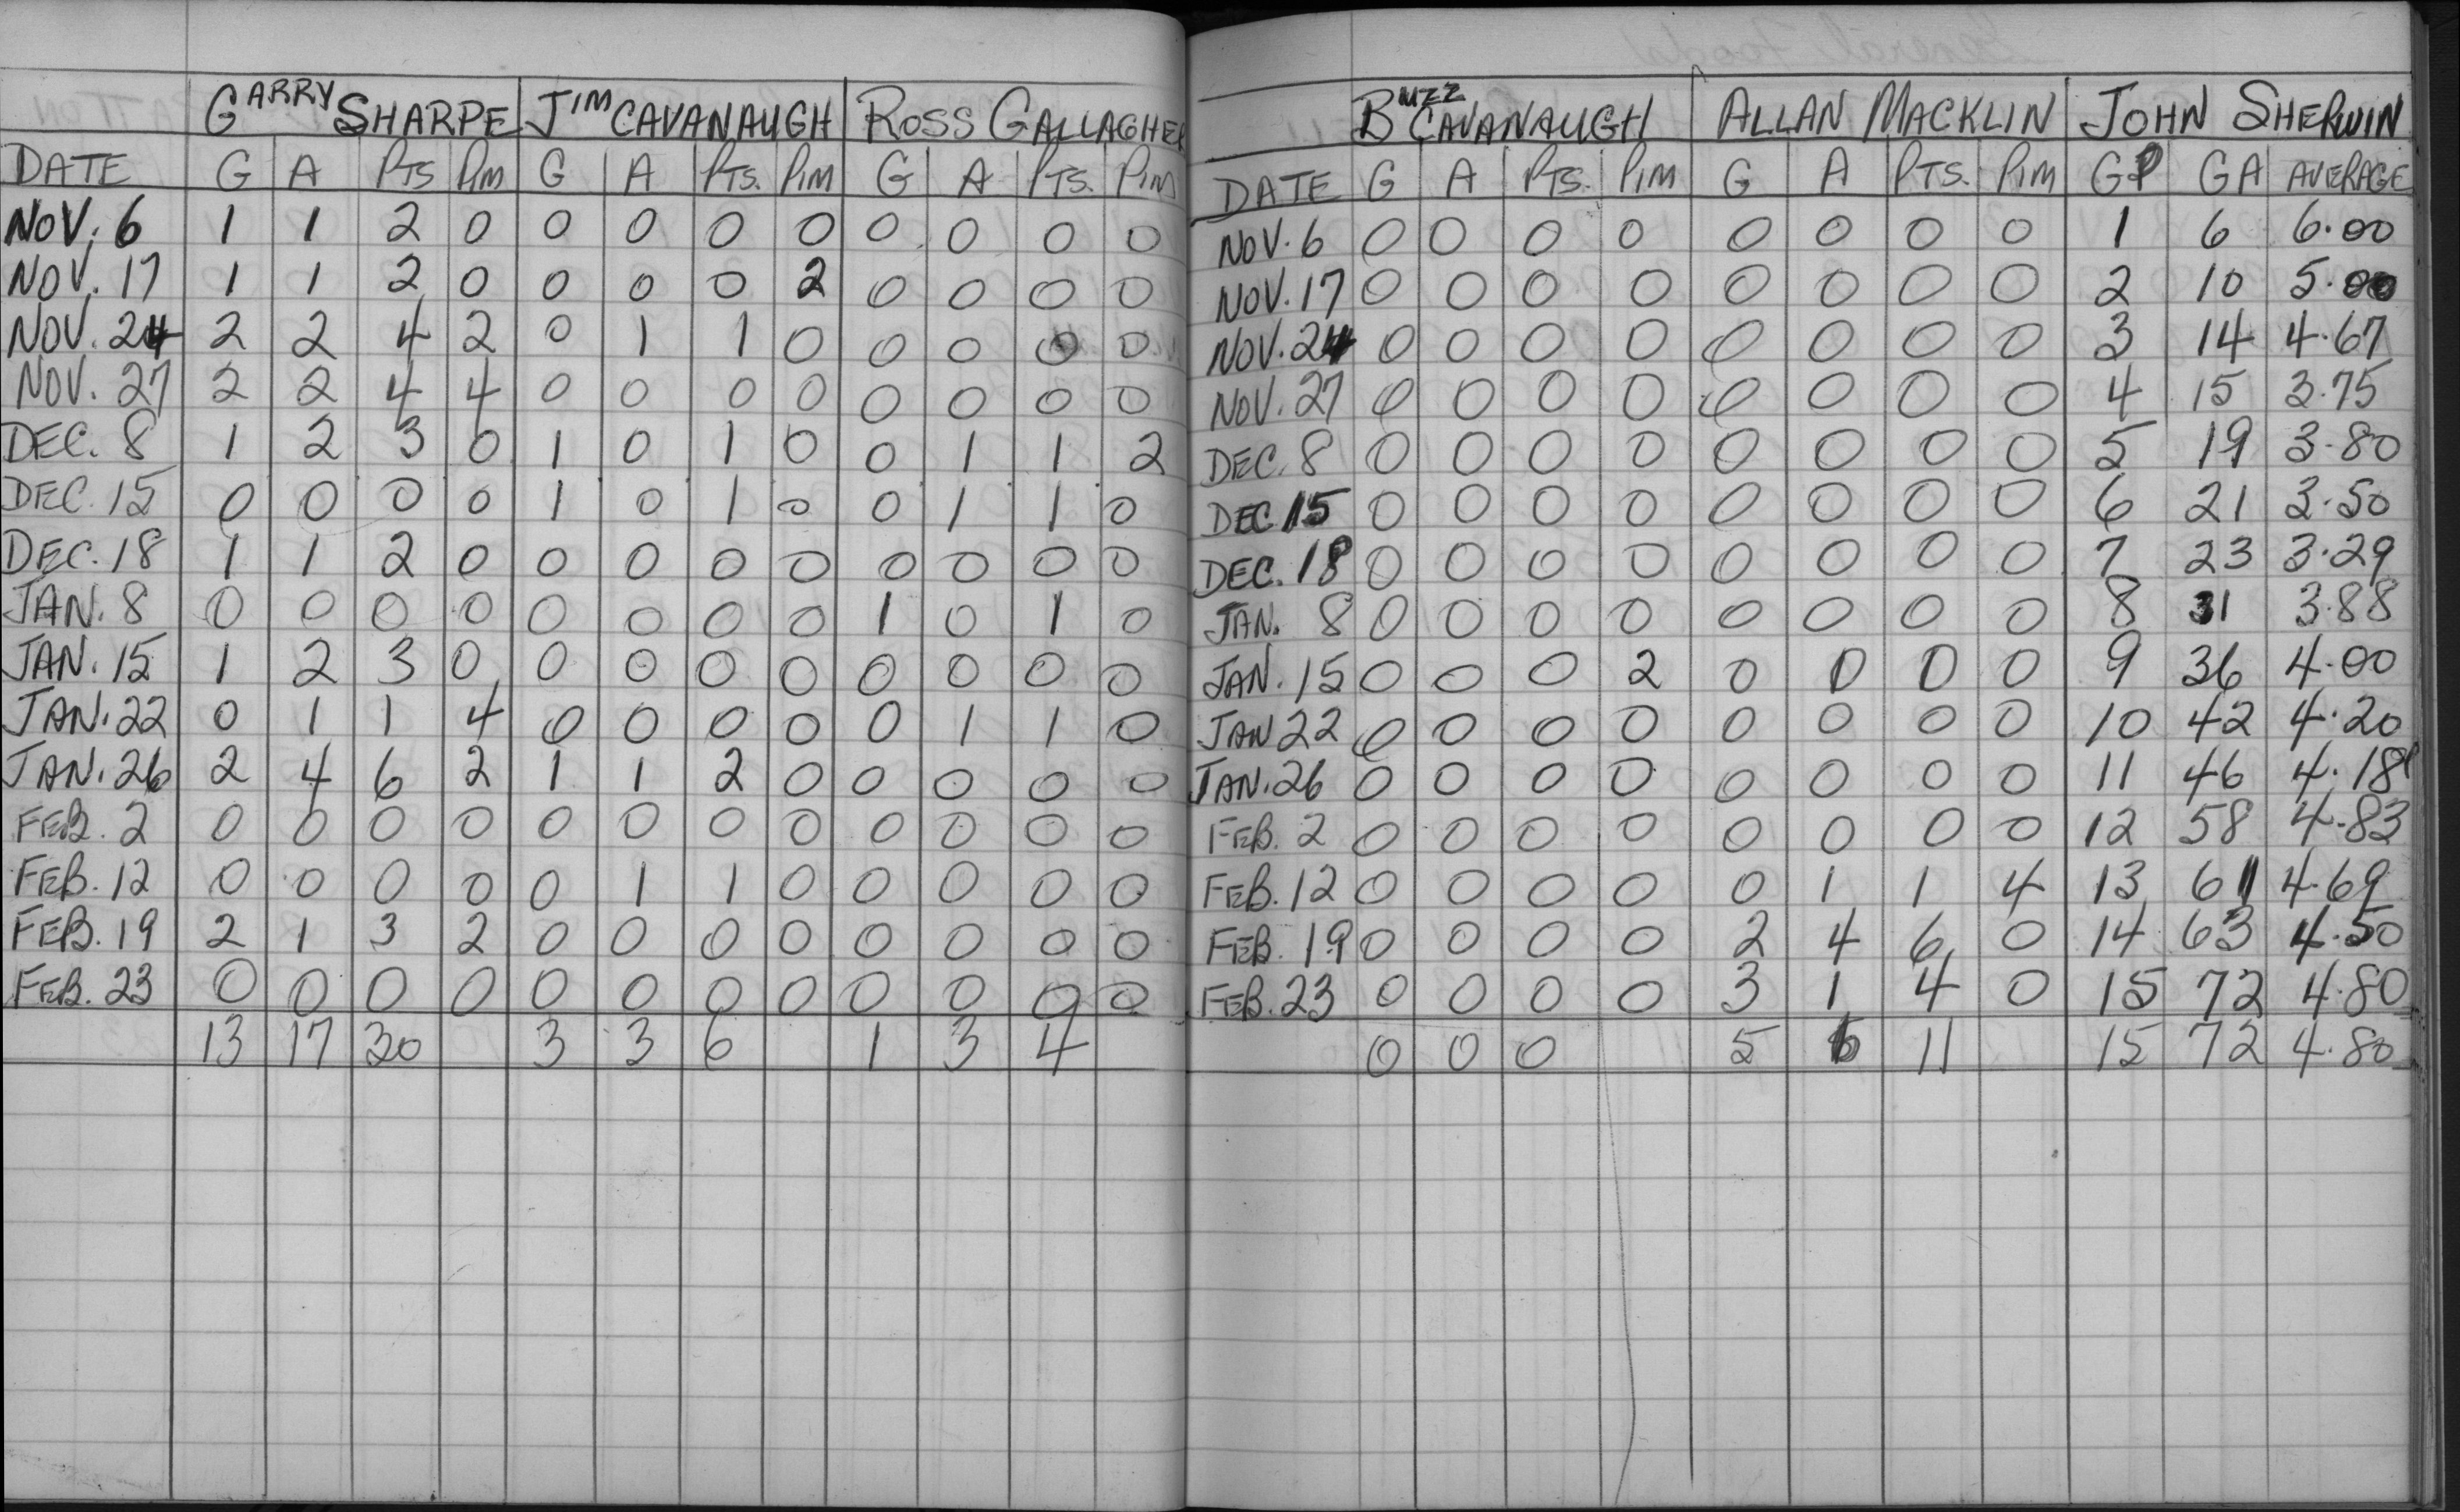 GARRY SHARPE JIM CAVANAUGH ROSS GALLAGHER
DATE G A PTS PIM G A PTS. PIM G A PTS. PIM
NOV. 6 1 1 2 0 0 0 0 0 0 0 0 0
NOV. 17 1 1 2 0 0 0 0 2 0 0 0 0
NOV. 24 2 2 4 2 0 1 1 0 0 0 0 0
NOV. 27 2 2 4 4 0 0 0 0 0 0 0 0
DEC. 8 1 2 3 0 1 0 1 0 0 1 1 2
DEC. 15 0 0 0 0 1 0 1 0 0 1 1 0
DEC. 18 1 1 2 0 0 0 0 0 0 0 0 0
JAN. 8 0 0 0 0 0 0 0 0 1 0 1 0
JAN. 15 1 2 3 0 0 0 0 0 0 0 0 0
JAN. 22 0 1 1 4 0 0 0 0 0 1 1 0
JAN. 26 2 4 6 2 1 1 2 0 0 0 0 0
FEB. 2 0 0 0 0 0 0 0 0 0 0 0 0
FEB. 12 0 0 0 0 0 1 1 0 0 0 0 0
FEB. 19 2 1 3 2 0 0 0 0 0 0 0 0
FEB. 23 0 0 0 0 0 0 0 0 0 0 0 0
13 17 30 3 3 6 1 3 4
BUZZ CAVANAUGH ALLAN MACKLIN JOHN SHERWIN
DATE G A PTS. PIM G A PTS. PIM GP GA AVERAGE
NOV. 6 0 0 0 0 0 0 0 0 1 6 6.00
NOV. 17 0 0 0 0 0 0 0 0 2 10 5.00
NOV. 24 0 0 0 0 0 0 0 0 3 14 4.67
NOV. 27 0 0 0 0 0 0 0 0 4 15 3.75
DEC. 8 0 0 0 0 0 0 0 0 5 19 3.80
DEC 15 0 0 0 0 0 0 0 0 6 21 3.50
DEC. 18 0 0 0 0 0 0 0 0 7 23 3.29
JAN. 8 0 0 0 0 0 0 0 0 8 31 3.88
JAN. 15 0 0 0 2 0 0 0 0 9 36 4.00
JAN 22 0 0 0 0 0 0 0 0 10 42 4.20
JAN. 26 0 0 0 0 0 0 0 0 11 46 4.18
FEB. 2 0 0 0 0 0 0 0 0 12 58 4.83
FEB. 12 0 0 0 0 0 1 1 4 13 61 4.69
FEB. 19 0 0 0 0 2 4 6 0 14 63 4.50
FEB. 23 0 0 0 0 3 1 4 0 15 72 4.80
0 0 0 5 6 11 15 72 4.80